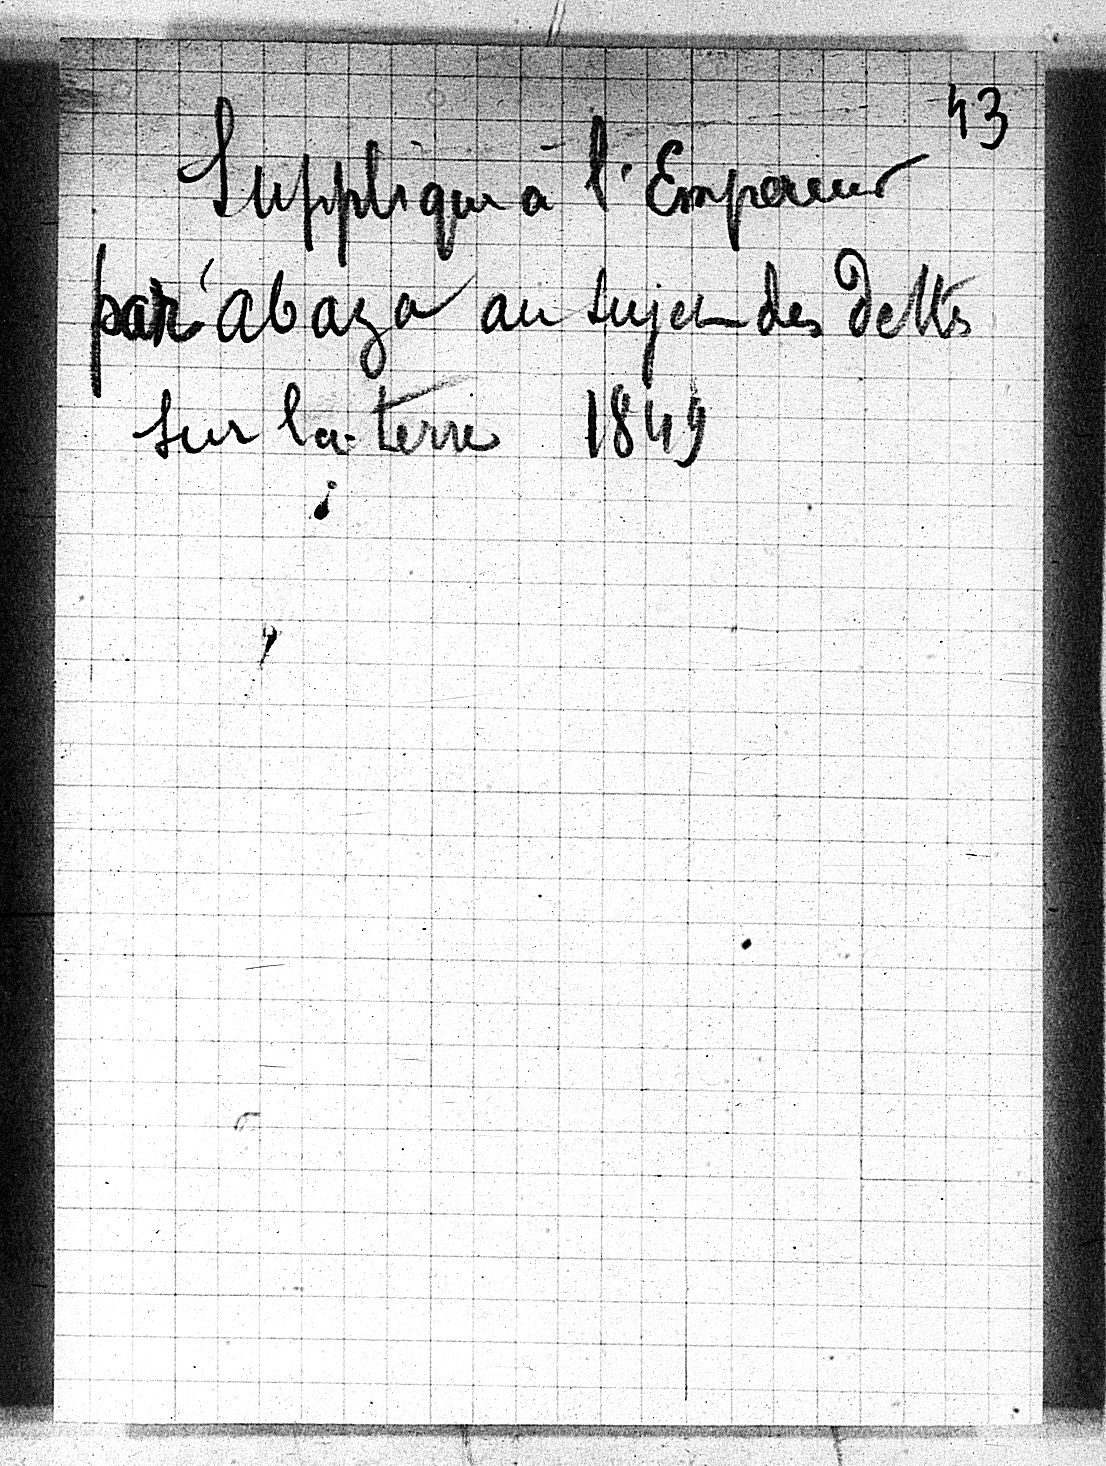 43
Supplique à l'Empereur
par Abaza au sujet des dettes
sur la terre 1849